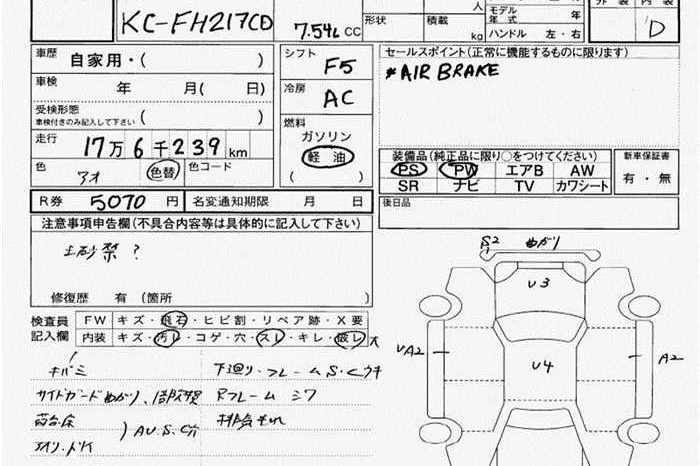 KC-FH217CD
7.54L CC
形状
積載 kg
人
モデル年式 年
ハンドル 左・右
外装 内装
D
車歴 自家用・( )
シフト F5
セールスポイント(正常に機能するものに限ります)
*AIR BRAKE
車検 年 月( 日)
冷房 AC
受検形態 ( )
車検付きのみ記入して下さい
燃料
ガソリン
軽油
( )
走行 17万6千239km
色 アオ 色替 色コード
装備品(純正品に限り○をつけてください)
PS PW エアB AW
SR ナビ TV カワシート
新車保証書
有・無
R券 5070円 名変通知期限 月 日
後日品
注意事項申告欄(不具合内容等は具体的に記入して下さい)
土砂禁?
修復歴 有(箇所
検査員記入欄
FW キズ・飛石・ヒビ割・リペア跡・X要
内装 キズ・汚レ・コゲ・穴・スレ・キレ・破レ 大
キバミ
下回り・フレームS・Cウキ
サイドガードめがり、1部欠損
Rフレームシワ
荷台床
AU.S.C穴
S2 めがり
U3
UA2
U4
A2